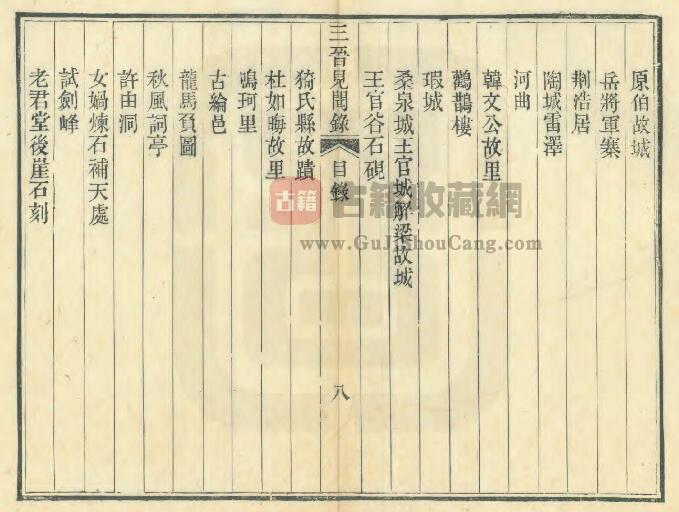 原伯故城
岳將軍寨
荆浩居
陶城雷澤
河曲
韓文公故里
鸛鵲樓
瑕城
桑泉城王官城解梁故城
王官谷石硯
三晉見聞錄
目錄
八
猗氏縣故蹟
杜如晦故里
鳴珂里
古綸邑
龍馬負圖
秋風詞亭
許由洞
女媧煉石補天處
試劍峰
老君堂後崖石刻
古籍
古籍收藏網
www.GuJiShouCang.com